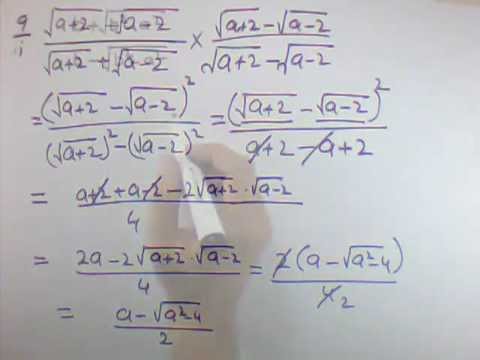 9/i (√a+2 - √a-2)/(√a+2 + √a-2) × (√a+2 - √a-2)/(√a+2 - √a-2)
= (√a+2 - √a-2)²/((√a+2)² - (√a-2)²) = (√a+2 - √a-2)²/(a+2 - a+2)
= (a+2 + a-2 - 2√a+2 · √a-2)/4
= (2a - 2√a+2 · √a-2)/4 = 2(a - √a²-4)/4 2
= (a - √a²-4)/2